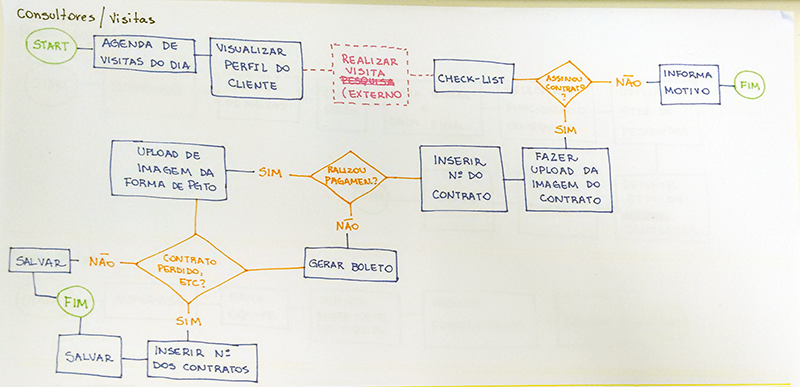 Consultores/Visitas
START
AGENDA DE
VISITAS DO DIA
VISUALIZAR
PERFIL DO
CLIENTE
REALIZAR
VISITA
PESQUISA
(EXTERNO
CHECK-LIST
ASSINOU
CONTRATO
?
NÃO
INFORMA
MOTIVO
FIM
SIM
FAZER
UPLOAD DA
IMAGEM DO
CONTRATO
INSERIR
Nº DO
CONTRATO
RALIZOU
PAGAMEN.?
SIM
UPLOAD DE
IMAGEM DA
FORMA DE PGTO
NÃO
GERAR BOLETO
CONTRATO
PERDIDO,
ETC?
NÃO
SALVAR
FIM
SIM
INSERIR Nº
DOS CONTRATOS
SALVAR